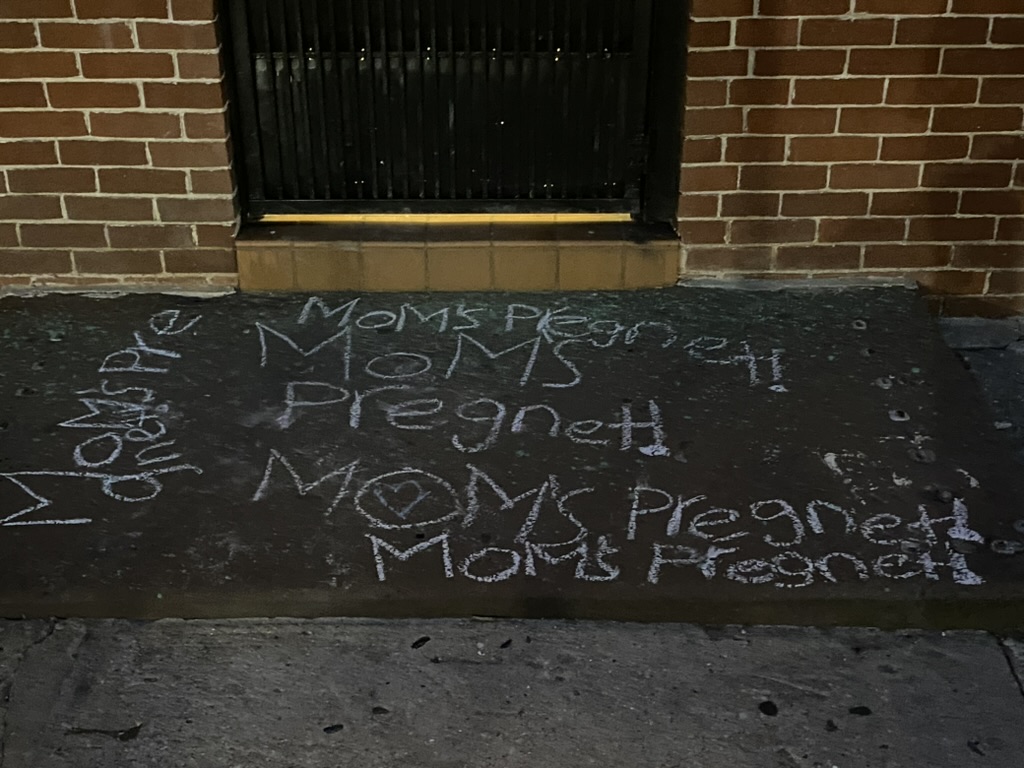 MoM's Pre
MoM's Pregnet!
MoMS
Pregnet!
MOM's Pregnet!
MoM's Pregnet!